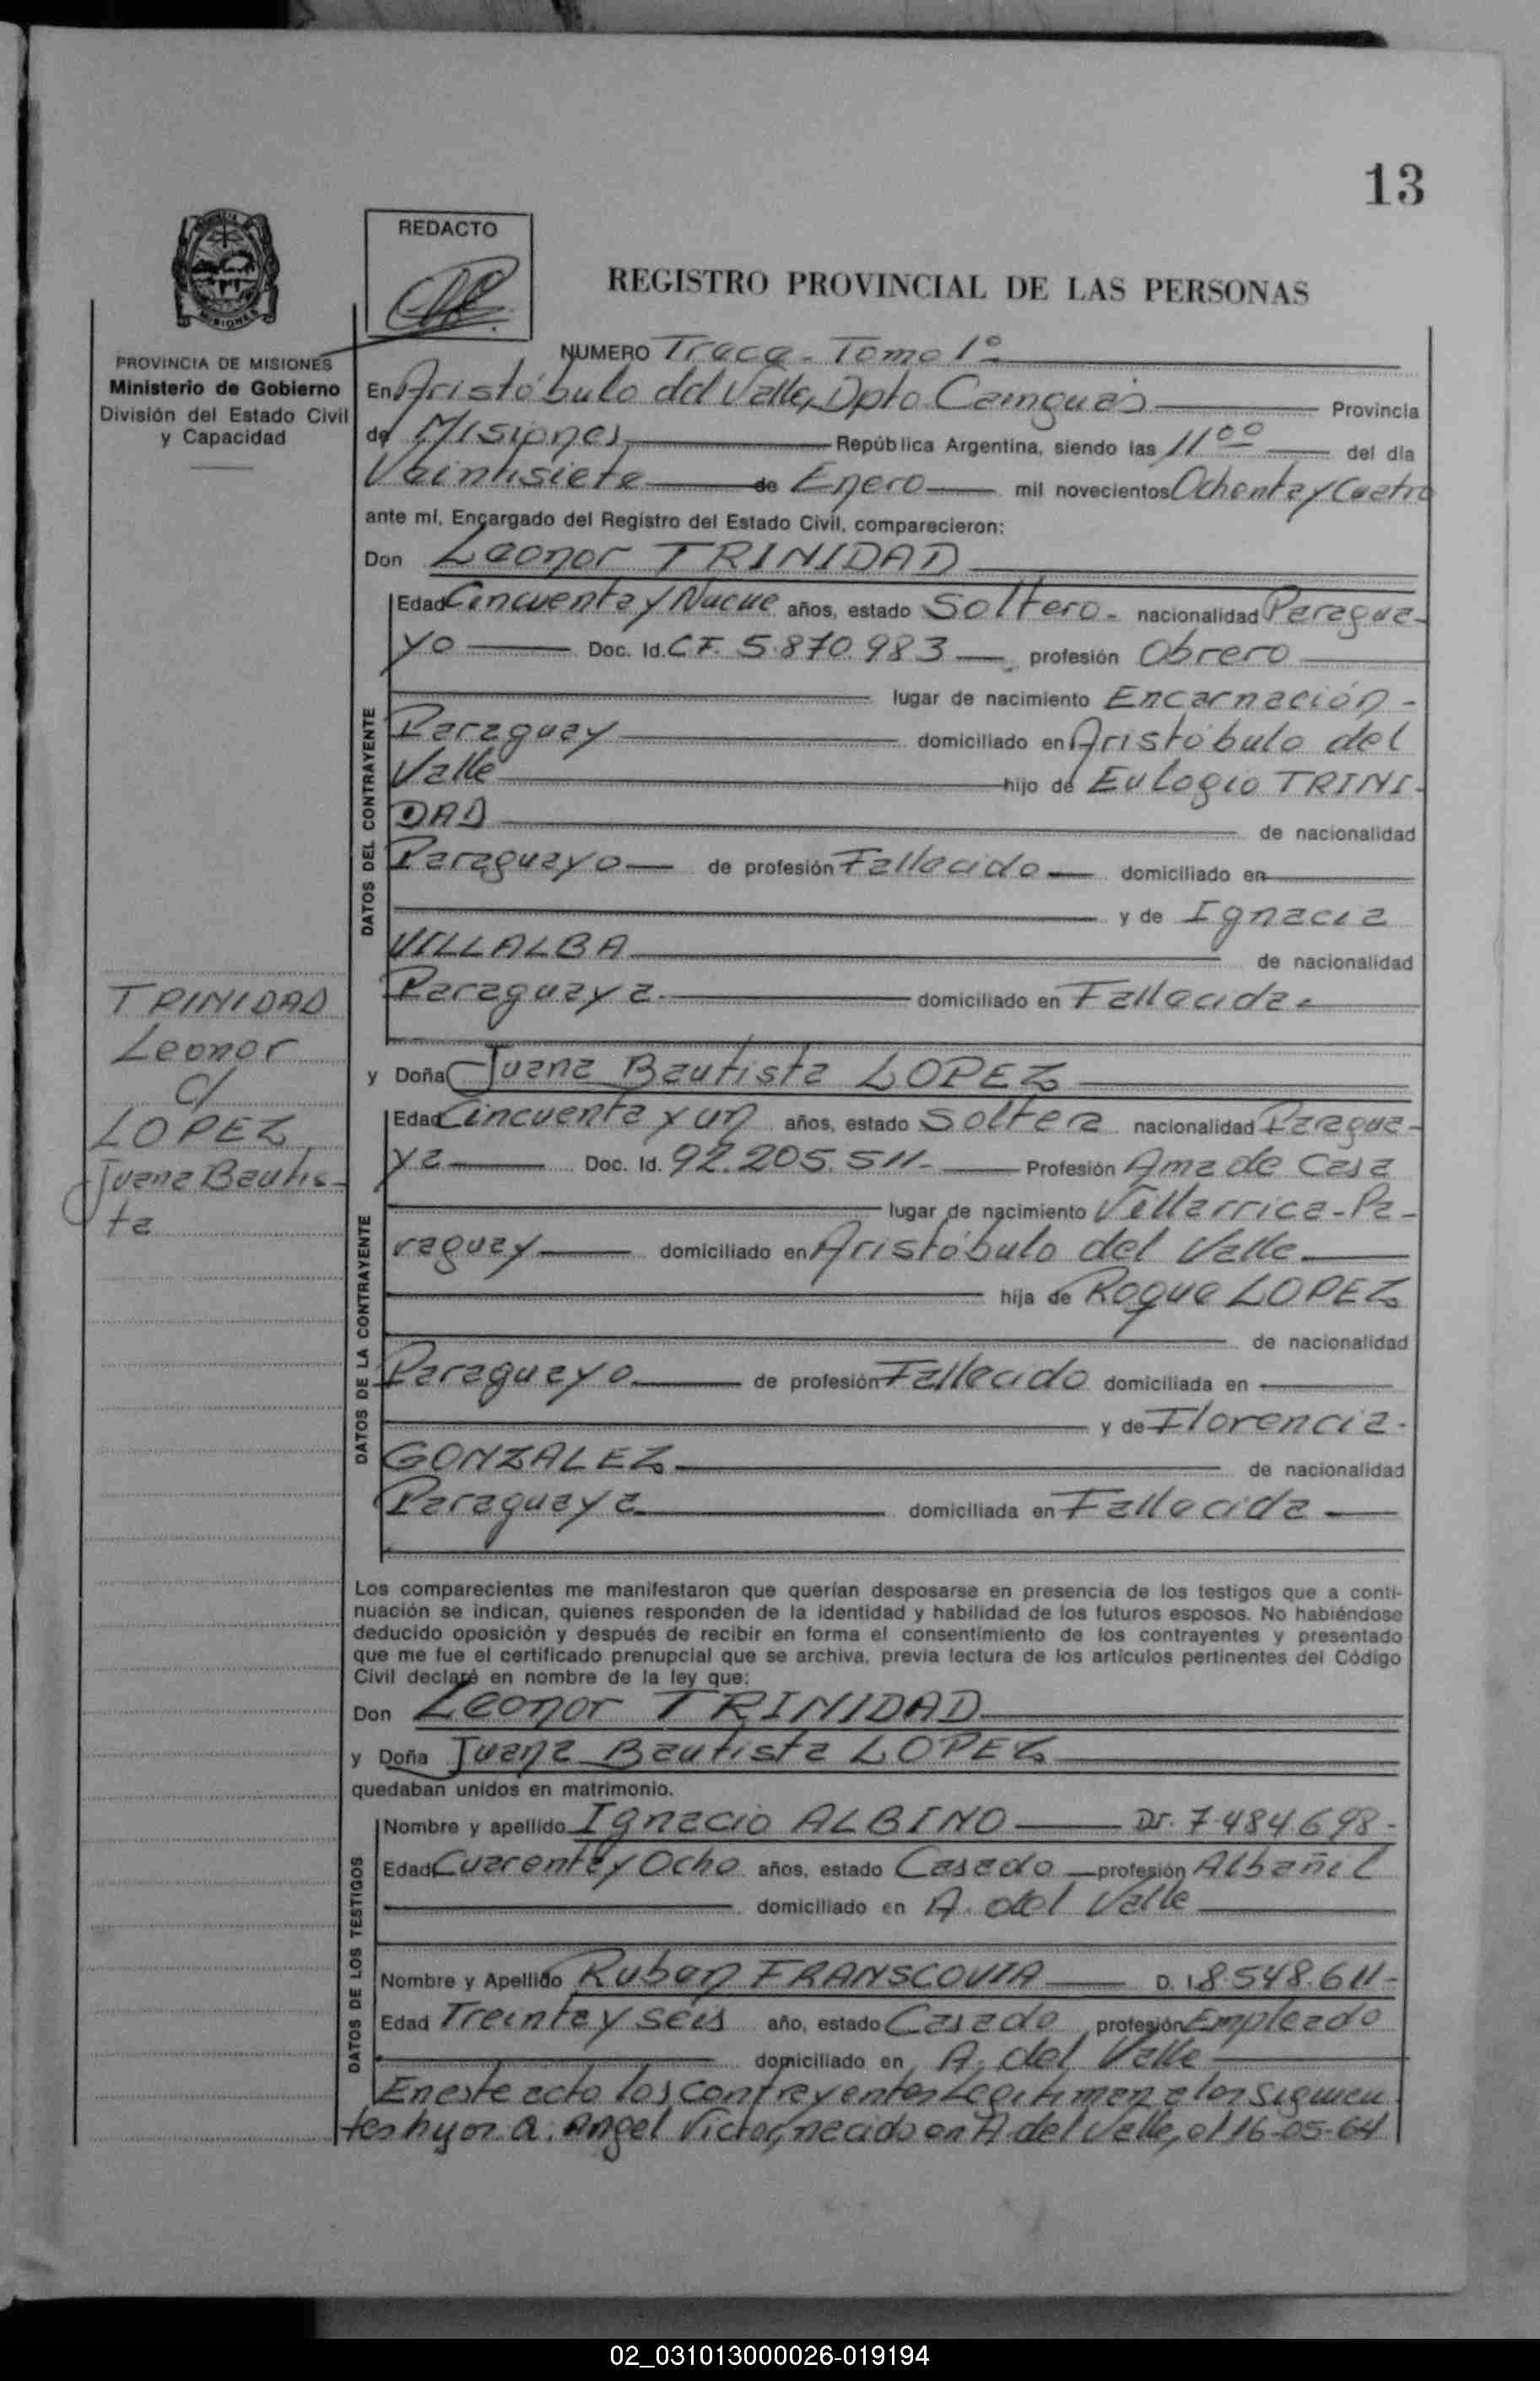 13
REDACTO
REGISTRO PROVINCIAL DE LAS PERSONAS
MISIONES
PROVINCIA DE MISIONES
Ministerio de Gobierno
División del Estado Civil
y Capacidad
NUMERO Trece - Tomo 1º
En Aristóbulo del Valle, Dpto Cainguás Provincia
de Misiones República Argentina, siendo las 11 00 del día
Veintisiete de Enero mil novecientos Ochenta y Cuatro
ante mí, Encargado del Registro del Estado Civil, comparecieron:
Don Leonor TRINIDAD
DATOS DEL CONTRAYENTE
Edad Cincuenta y Nueve años, estado Soltero - nacionalidad Paragua-
yo Doc. Id. CF. 5.870.983 profesión Obrero
lugar de nacimiento Encarnación -
Paraguay domiciliado en Aristóbulo del
Valle hijo de Eulogio TRINI-
DAD de nacionalidad
Paraguayo de profesión Fallecido domiciliado en
y de Ignacia
VILLALBA de nacionalidad
Paraguaya domiciliado en Fallecida
TRINIDAD
Leonor
c/
LOPEZ
Juana Bautis-
ta
y Doña Juana Bautista LOPEZ
DATOS DE LA CONTRAYENTE
Edad Cincuenta y un años, estado Soltera nacionalidad Paragua-
ya Doc. Id. 92.205.511- Profesión Ama de Casa
lugar de nacimiento Villarrica - Pa-
raguay domiciliado en Aristóbulo del Valle
hija de Roque LOPEZ
de nacionalidad
Paraguayo de profesión Fallecido domiciliada en
y de Florencia -
GONZALEZ de nacionalidad
Paraguaya domiciliada en Fallecida
Los comparecientes me manifestaron que querían desposarse en presencia de los testigos que a conti-
nuación se indican, quienes responden de la identidad y habilidad de los futuros esposos. No habiéndose
deducido oposición y después de recibir en forma el consentimiento de los contrayentes y presentado
que me fue el certificado prenupcial que se archiva, previa lectura de los artículos pertinentes del Código
Civil declaré en nombre de la ley que:
Don Leonor TRINIDAD
y Doña Juana Bautista LOPEZ
quedaban unidos en matrimonio.
DATOS DE LOS TESTIGOS
Nombre y apellido Ignacio ALBINO DI. 7.484.698-
Edad Cuarenta y Ocho años, estado Casado profesión Albañil
domiciliado en A. del Valle
Nombre y Apellido Ruben FRANSCOVIA D. I. 8.548.611-
Edad Treinta y seis año, estado Casado profesión Empleado
domiciliado en A. del Valle
En este acto los contrayentes Legitiman a los siguien
tes hijos a: Angel Victor, nacido en A. del Valle, el 16-05-64
02_031013000026-019194